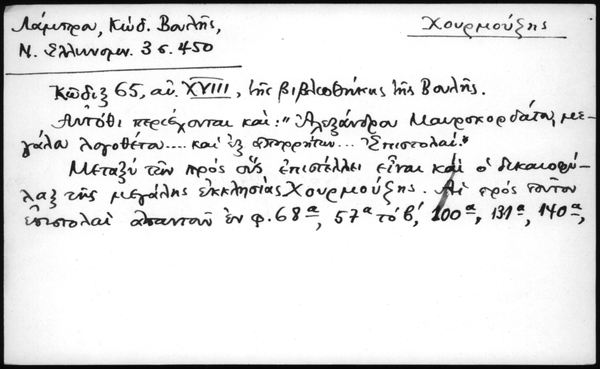 Λάμπρου, Κώδ. Βουλῆς,
Χουρμούζης
Ν. Ἑλληνομν. 3 σ. 450
Κῶδιξ 65, αἰ. XVIII, τῆς βιβλιοθήκης τῆς Βουλῆς.
Αὐτόθι περιέχονται καὶ: "Ἀλεξάνδρου Μαυροκορδάτου, με-
γάλου λογοθέτου.... καὶ ἐξ ἀπορρήτων... Ἐπιστολαί."
Μεταξὺ τῶν πρὸς οὓς ἐπιστέλλει εἶναι καὶ ὁ δικαιοφύ-
λαξ τῆς μεγάλης ἐκκλησίας Χουρμούζης. Αἱ πρὸς τοῦτον
ἐπιστολαὶ ἀπαντοῦν ἐν φ. 68α, 57α τὸ β', 100α, 131α, 140α,